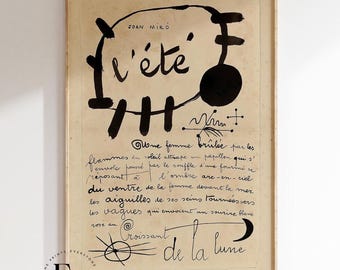 JOAN MIRÓ
l'été
Une femme brûlée par les
flammes en soleil attrape un papillon qui s'
envole poussé par le souffle d'une fourmi se
reposant à l'ombre arc-en-ciel
du ventre de la femme devant la mer
les aiguilles de ses seins tournées vers
les vagues qui envoient un sourire blanc
rose en Croissant
de la lune